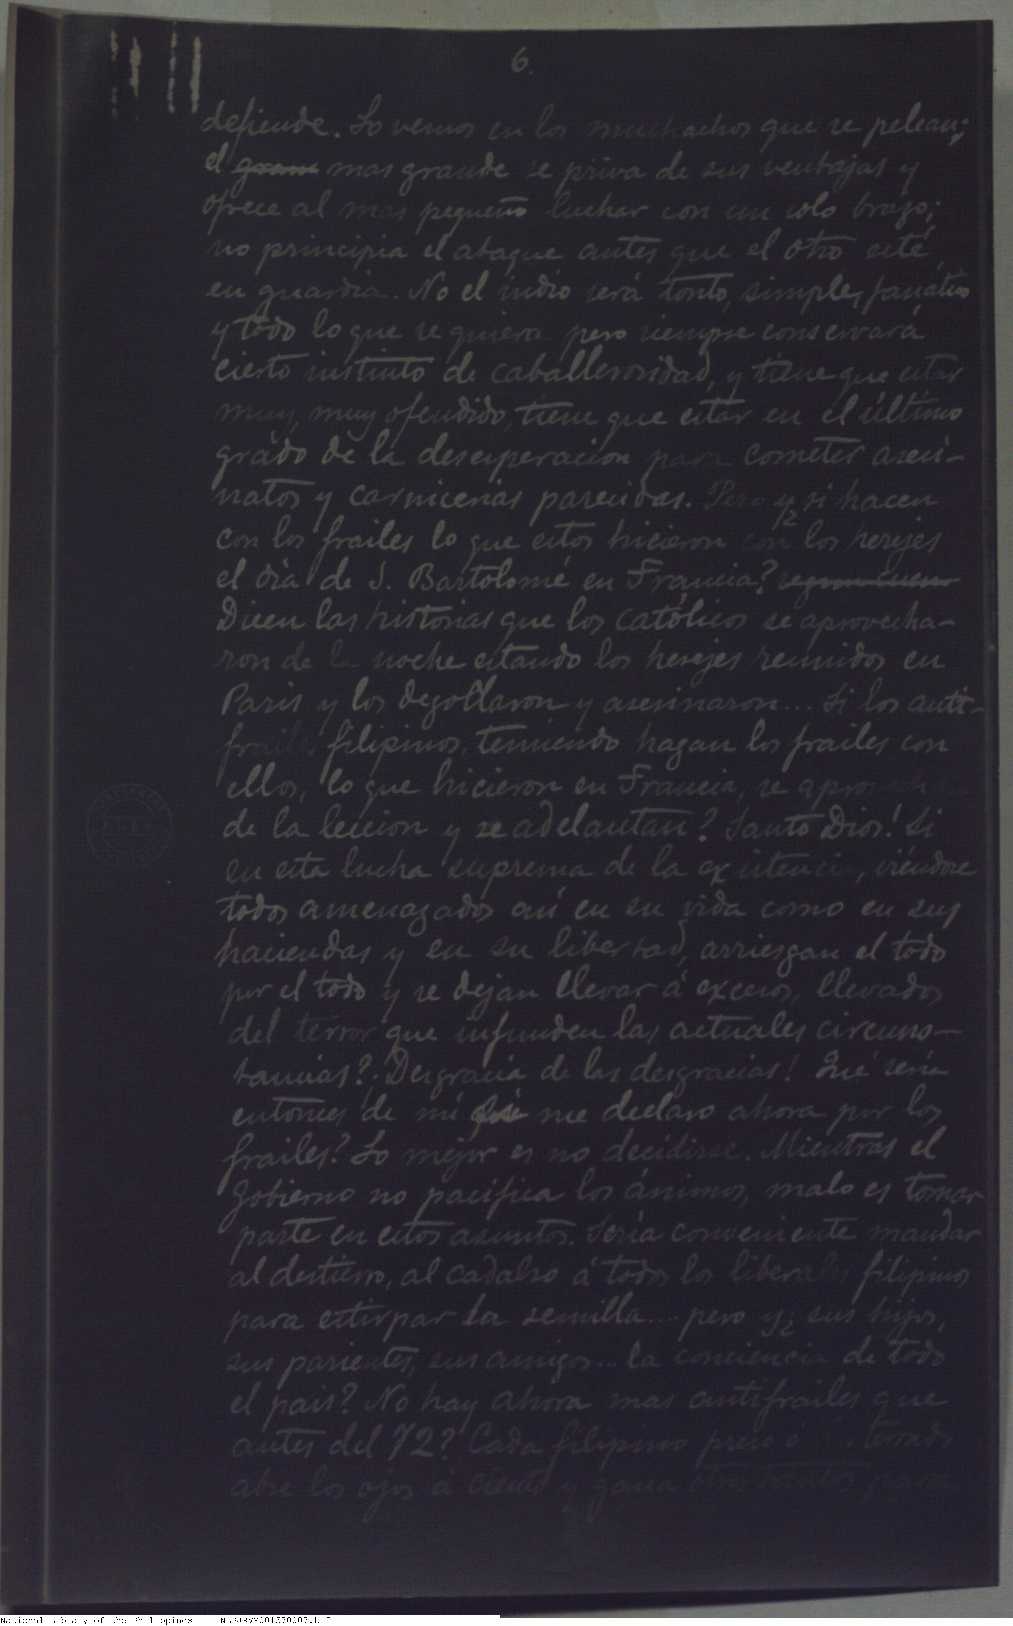 6.
defiende. Lo vemos en los muchachos que se pelean;
el mas grande se priva de sus ventajas y
ofrece al mas pequeño luchar con un solo brazo;
no principia el ataque antes que el otro esté
en guardia. No el indio será tonto, simple, fanático
y todo lo que se quiera pero siempre conservará
cierto instinto de caballerosidad, y tiene que estar
muy, muy ofendido, tiene que estar en el último
grado de la desesperacion para cometer asesi-
natos y carnicerias parecidas. Pero y ¿si hacen
con los frailes lo que estos hicieron con los herejes
el dia de S. Bartolomé en Francia?
Dicen las historias que los católicos se aprovecha-
ron de la noche estando los herejes reunidos en
Paris y los degollaron y asesinaron... Si los anti-
frailes filipinos, temiendo hagan los frailes con
ellos, lo que hicieron en Francia, se aprovechan
de la leccion y se adelantan? Santo Dios! Si
en esta lucha suprema de la existencia, viéndose
todos amenazados asi en su vida como en sus
haciendas y en su libertad, arriesgan el todo
por el todo y se dejan llevar á excesos, llevados
del terror que infunden las actuales circuns-
tancias? Desgracia de las desgracias! Qué seria
entonces de mi si me declaro ahora por los
frailes? Lo mejor es no decidirse. Mientras el
Gobierno no pacifica los ánimos, malo es tomar
parte en estos asuntos. Sería conveniente mandar
al destierro, al cadalso á todos los liberales filipinos
para estirpar la semilla.... pero y ¿sus hijos,
sus parientes, sus amigos... la conciencia de todo
el pais? No hay ahora mas antifrailes que
antes del 72? Cada filipino preso ó
abre los ojos á ciento y gana otros tantos para
National Library of the Philippines